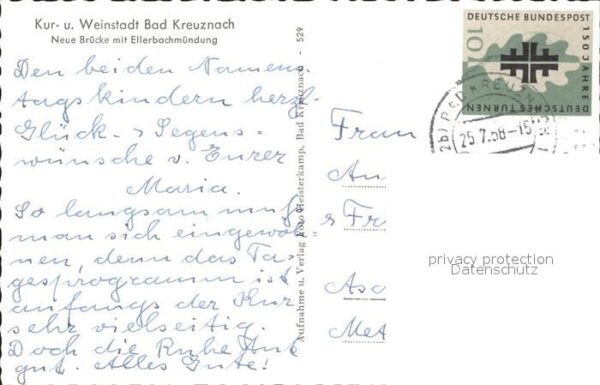 Kur- u. Weinstadt Bad Kreuznach
Neue Brücke mit Ellerbachmündung
Den beiden Namens
tagskindern herzl.
Glück- & Segens-
wünsche v. Eurer
Maria.
So langsam muß
man sich eingewöh-
nen, denn das Ta-
gesprogramm ist
anfangs der Kur
sehr vielseitig.
Doch die Ruhe tut
gut. Alles Gute!
Aufnahme u. Verlag Foto Heisterkamp, Bad Kreuznach - 529
DEUTSCHE BUNDESPOST
10
150 JAHRE
DEUTSCHES TURNEN
(2b) BAD KREUZN
25.7.58-15
Frau
An
Fr
Asc
Met
privacy protection
Datenschutz